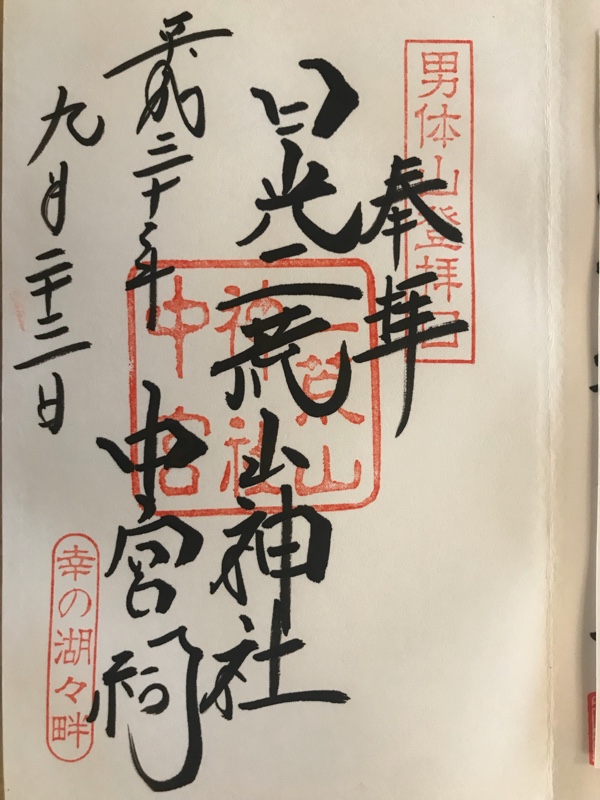 男体山登拝口
奉拝
日光二荒山神社
中宮祠
二荒山
神社
中宮
平成三十年
九月二十三日
幸の湖々畔